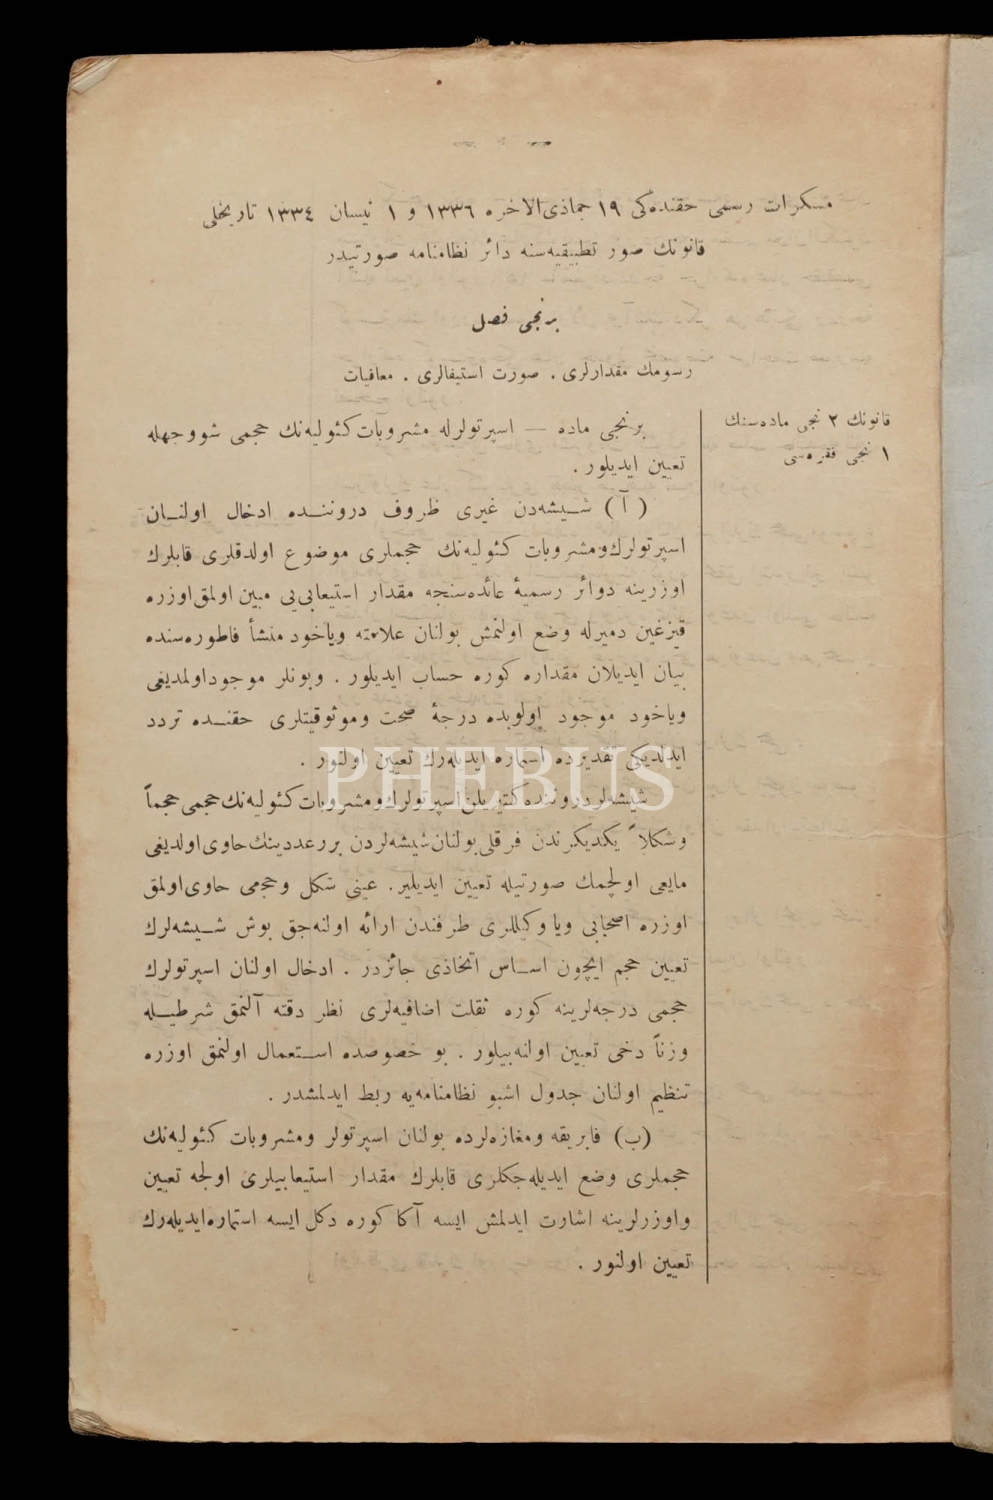 مسكرات رسمی حقنده‌كی ١٩ جماذی‌الاخره ١٣٣٦ و ١ نیسان ١٣٣٤ تاریخلی
قانونك صور تطبیقیه‌سنه دائر نظامنامه صورتیدر
برنجی فصل
رسومك مقدارلری . صورت استیفالری . معافیات
قانونك ٢ نجی ماده‌سنك
١ نجی فقره‌سی
برنجی ماده — اسپرتولرله مشروبات كئولیه‌نك حجمی شووجهله
تعیین ایدیلور .
( آ ) شیشه‌دن غیری ظروف دروننده ادخال اولنان
اسپرتولرك‌ومشروبات كئولیه‌نك حجملری موضوع اولدقلری قابلرك
اوزرینه دوائر رسمیهٔ عائده‌سنجه مقدار استیعابی‌یی مبین اولمق‌اوزره
قیزغین دمیرله وضع اولنمش بولنان علامته ویاخود منشأ فاطوره‌سنده
بیان ایدیلان مقداره كوره حساب ایدیلور . وبونلر موجوداولمدیغی
ویاخود موجود اولوبده درجهٔ صحت وموثوقیتلری حقنده تردد
ایدلدیكی تقدیرده استماره ایدیله‌رك تعیین اولنور .
PHEBUS
شیشه‌لردروننده كتیریلن‌اسپرتولرك‌ومشروبات كئولیه‌نك حجمی حجماً
وشكلاً یكدیكرندن فرقلی‌بولنان‌شیشه‌لردن بررعددینك‌حاوی‌اولدیغی
مایعی اولچمك صورتیله تعیین ایدیلیر . عینی شكل وحجمی حاوی‌اولمق
اوزره اصحابی ویا وكیللری طرفندن ارائه اولنه‌جق بوش شیشه‌لرك
تعیین حجم ایچون اساس اتخاذی جائزدر . ادخال اولنان اسپرتولرك
حجمی درجه‌لرینه كوره ثقلت اضافیه‌لری نظر دقته آلنمق شرطیله
وزناً دخی تعیین اولنه‌بیلور . بو خصوصده استعمال اولنمق اوزره
تنظیم اولنان جدول اشبو نظامنامه‌یه ربط ایدلمشدر .
(ب) فابریقه ومغازه‌لرده بولنان اسپرتولر ومشروبات كئولیه‌نك
حجملری وضع ایدیله‌جكلری قابلرك مقدار استیعابیلری اولجه تعیین
واوزرلرینه اشارت ایدلمش ایسه آكا كوره دكل ایسه استماره‌ایدیله‌رك
تعیین اولنور .